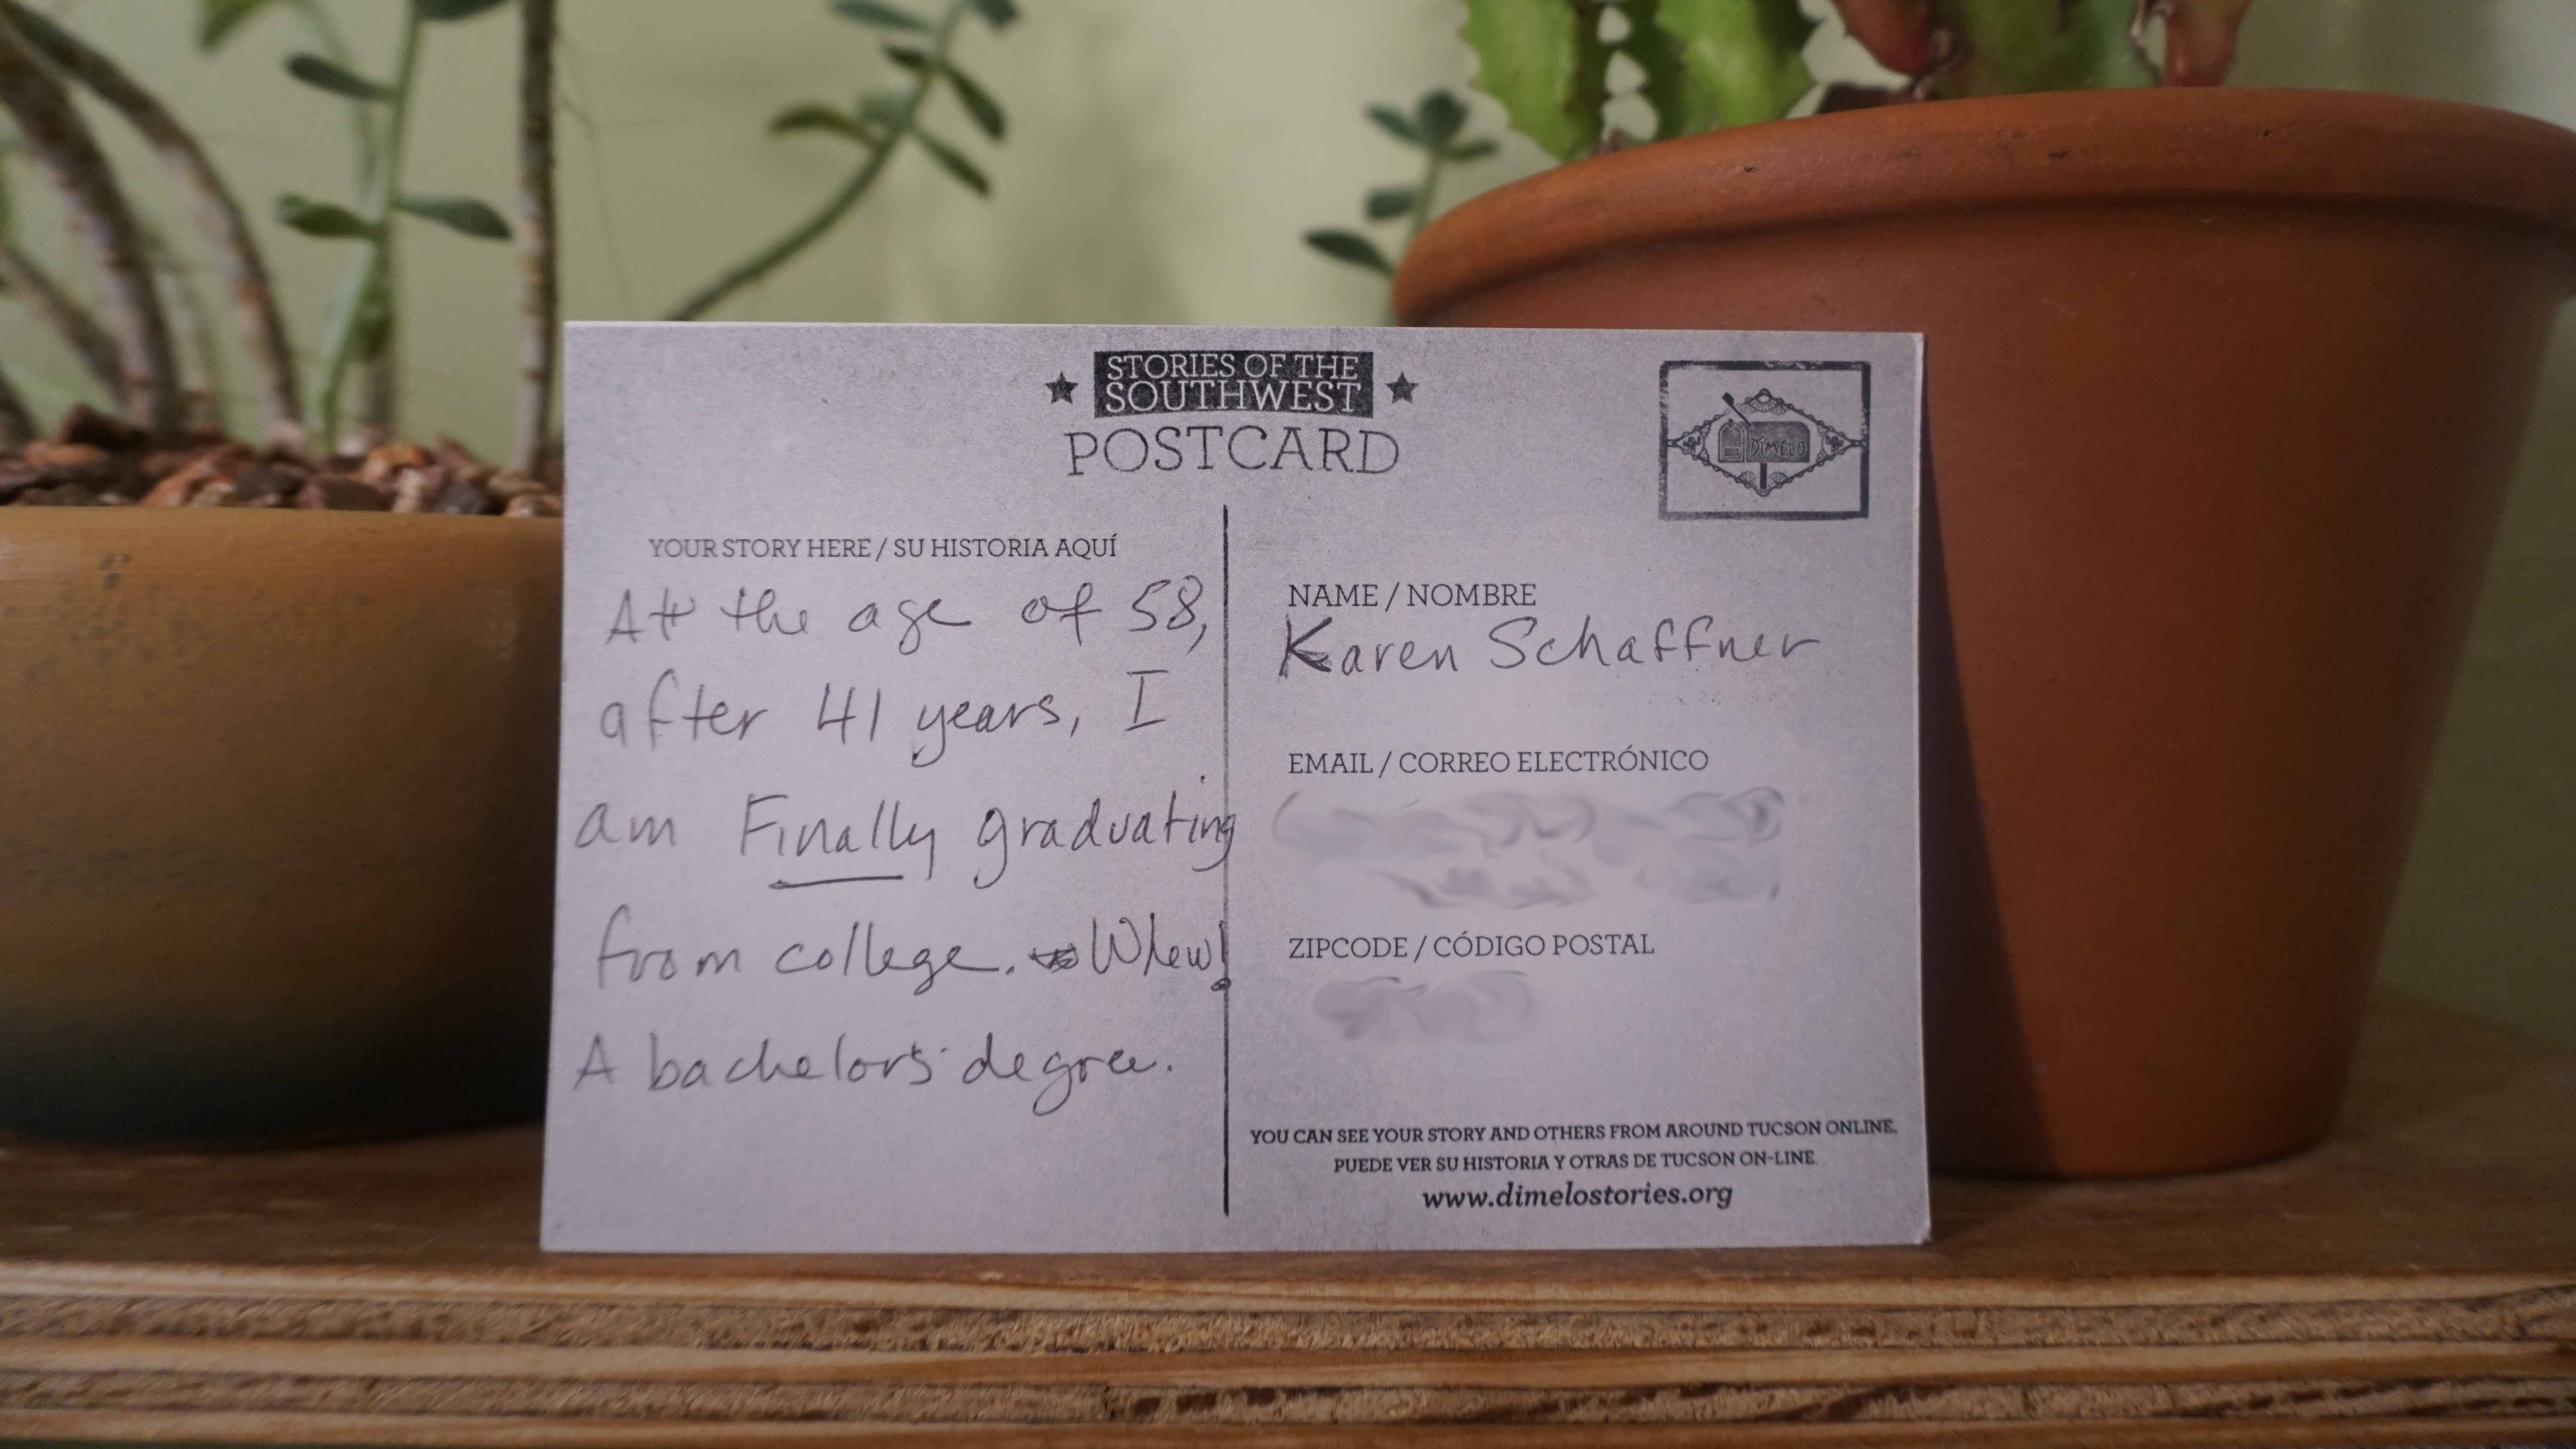 STORIES OF THE
SOUTHWEST
POSTCARD
DÍMELO
YOUR STORY HERE / SU HISTORIA AQUÍ
At the age of 58,
after 41 years, I
am Finally graduating
from college. Whew!
A bachelor's degree.
NAME / NOMBRE
Karen Schaffner
EMAIL / CORREO ELECTRÓNICO
ZIPCODE / CÓDIGO POSTAL
YOU CAN SEE YOUR STORY AND OTHERS FROM AROUND TUCSON ONLINE.
PUEDE VER SU HISTORIA Y OTRAS DE TUCSON ON-LINE.
www.dimelostories.org